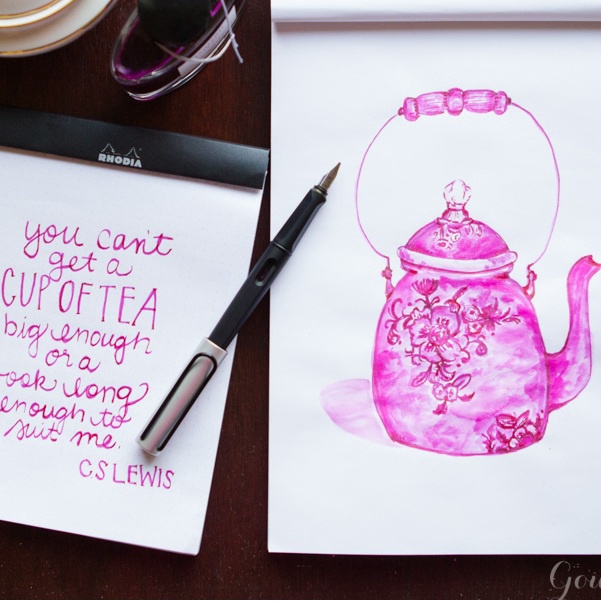 RHODIA
you can't
get a
CUP OF TEA
big enough
or a
ook long
enough to
suit me.
CS LEWIS
Gou